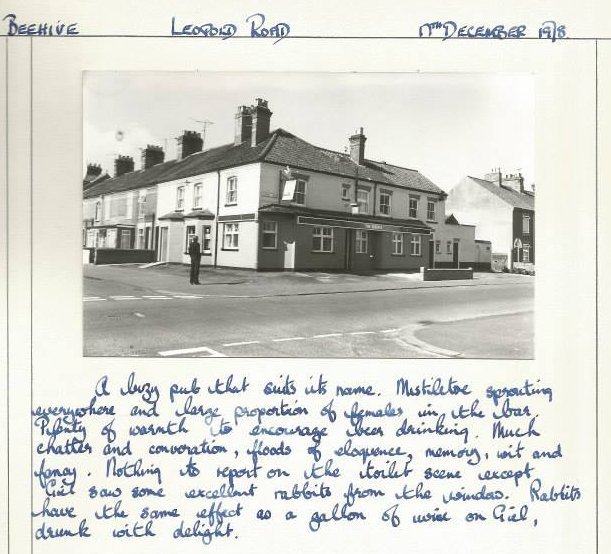 BEEHIVE LEOPOLD ROAD 17TH DECEMBER 1978
A buzy pub that suits its name. Mistiletoe sprouting
everywhere and large proportion of females in the bar.
Plenty of warmth to encourage beer drinking. Much
chatter and convoration, floods of eloquence, memory, wit and
fancy. Nothing to report on the toilet scene except
Giel saw some excellent rabbits from the window. Rabbits
have the same effect as a gallon of wine on Giel,
drunk with delight.